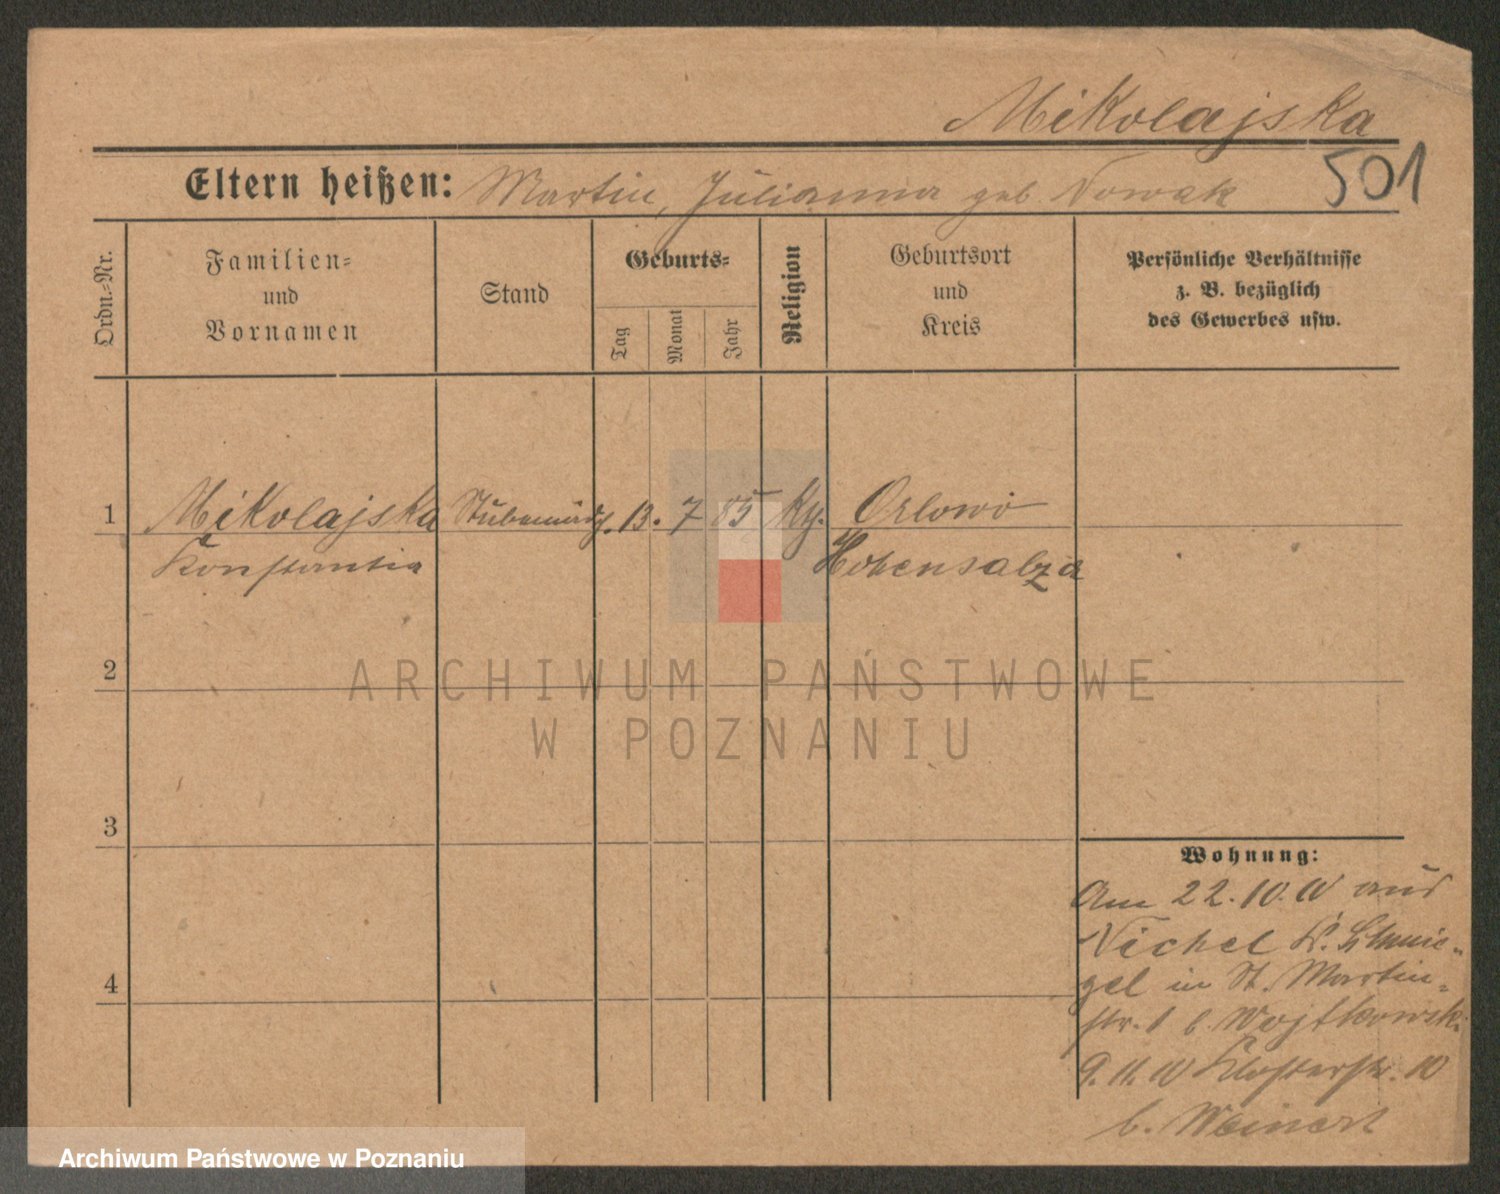 Mikolajska
501
Eltern heißen: Martin, Julianna geb. Nowak
Ordn.-Nr.
Familien-
und
Vornamen
Stand
Geburts-
Tag
Monat
Jahr
Religion
Geburtsort
und
Kreis
Persönliche Verhältnisse
z. B. bezüglich
des Gewerbes usw.
1 Mikolajska Stubenmädch. 13. 7 85 Orlowo
Konstantia Hohensalza
2
3
4
Wohnung:
Am 22.10.10 aus
K. Schmie-
gel in St. Martin-
str. 1 b. Wojtkowski
9.11.10 Klosterstr. 10
b. Weinert
ARCHIWUM PAŃSTWOWE
W POZNANIU
Archiwum Państwowe w Poznaniu